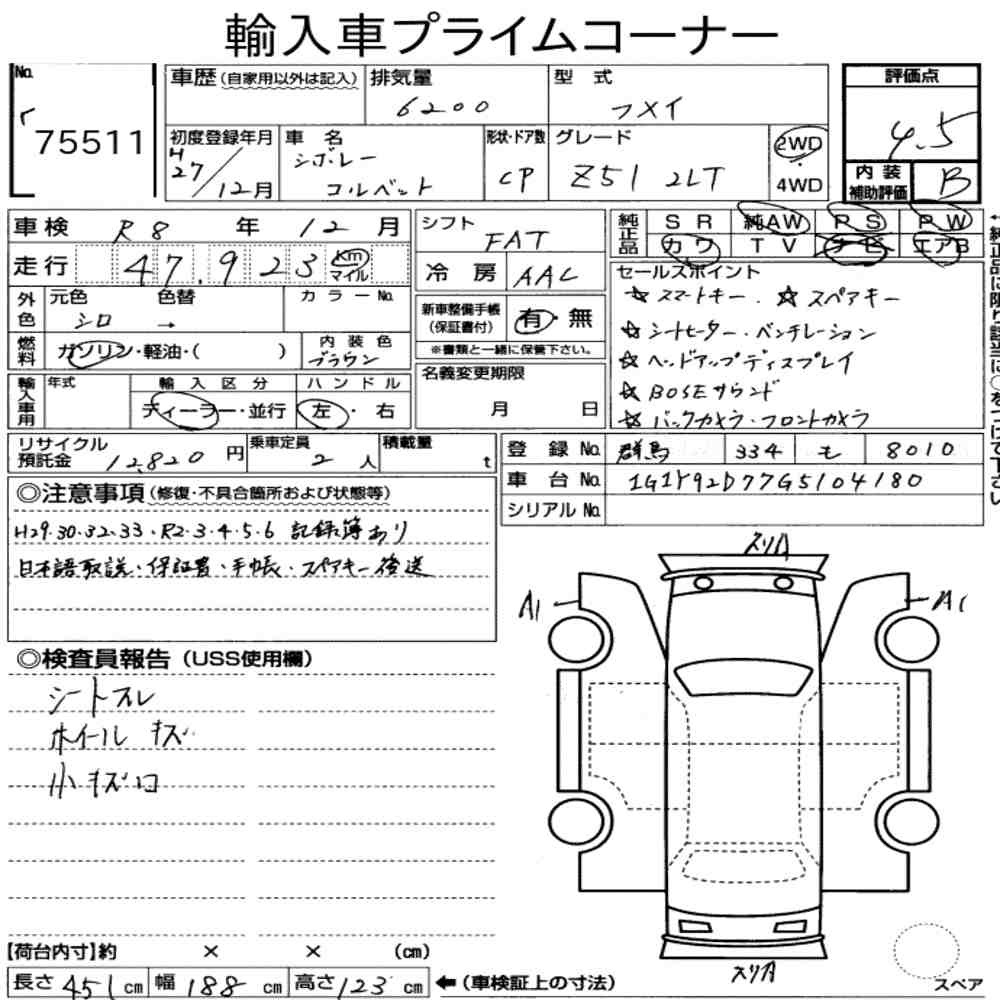 輸入車プライムコーナー
No.
75511
車歴 (自家用以外は記入)
排気量
6200
型 式
フメイ
評価点
4.5
初度登録年月
H27/12月
車 名
シボレー
コルベット
形状・ドア数
CP
グレード
Z51 2LT
2WD
・
4WD
内 装
補助評価
B
車検 R8 年 12 月
シフト
FAT
純正品
SR 純AW PS PW
カワ TV ナビ エアB
走行 47,923 Km マイル
冷 房 AAC
セールスポイント
☆ スマートキー . ☆ スペアキー
☆ シートヒーター・ベンチレーション
☆ ヘッドアップディスプレイ
☆ BOSEサウンド
☆ バックカメラ・フロントカメラ
外色
元色 色替
シロ →
カラーNo.
新車整備手帳
(保証書付)
有・無
※書類と一緒に保管下さい。
燃料
ガソリン・軽油・( )
内装色
ブラウン
名義変更期限
月 日
輸入車用
年式
輸入区分
ディーラー・並行
ハンドル
左・右
←純正品に限り該当に○をつけて下さい
リサイクル
預託金 12,820 円
乗車定員
2 人
積載量
t
登 録 No. 群馬 334 も 8010
車 台 No. 1G1Y92D77G5104180
シリアル No.
◎注意事項 (修復・不具合箇所および状態等)
H29.30.32.33.R2.3.4.5.6 記録簿あり
日本語取説・保証書・手帳・スペアキー後送
スリA
A1
A1
◎検査員報告 (USS使用欄)
シートスレ
ホイール キズ
小キズ凹
スリA
スペア
【荷台内寸】約 × × (cm)
長さ 451 cm 幅 188 cm 高さ 123 cm ←(車検証上の寸法)